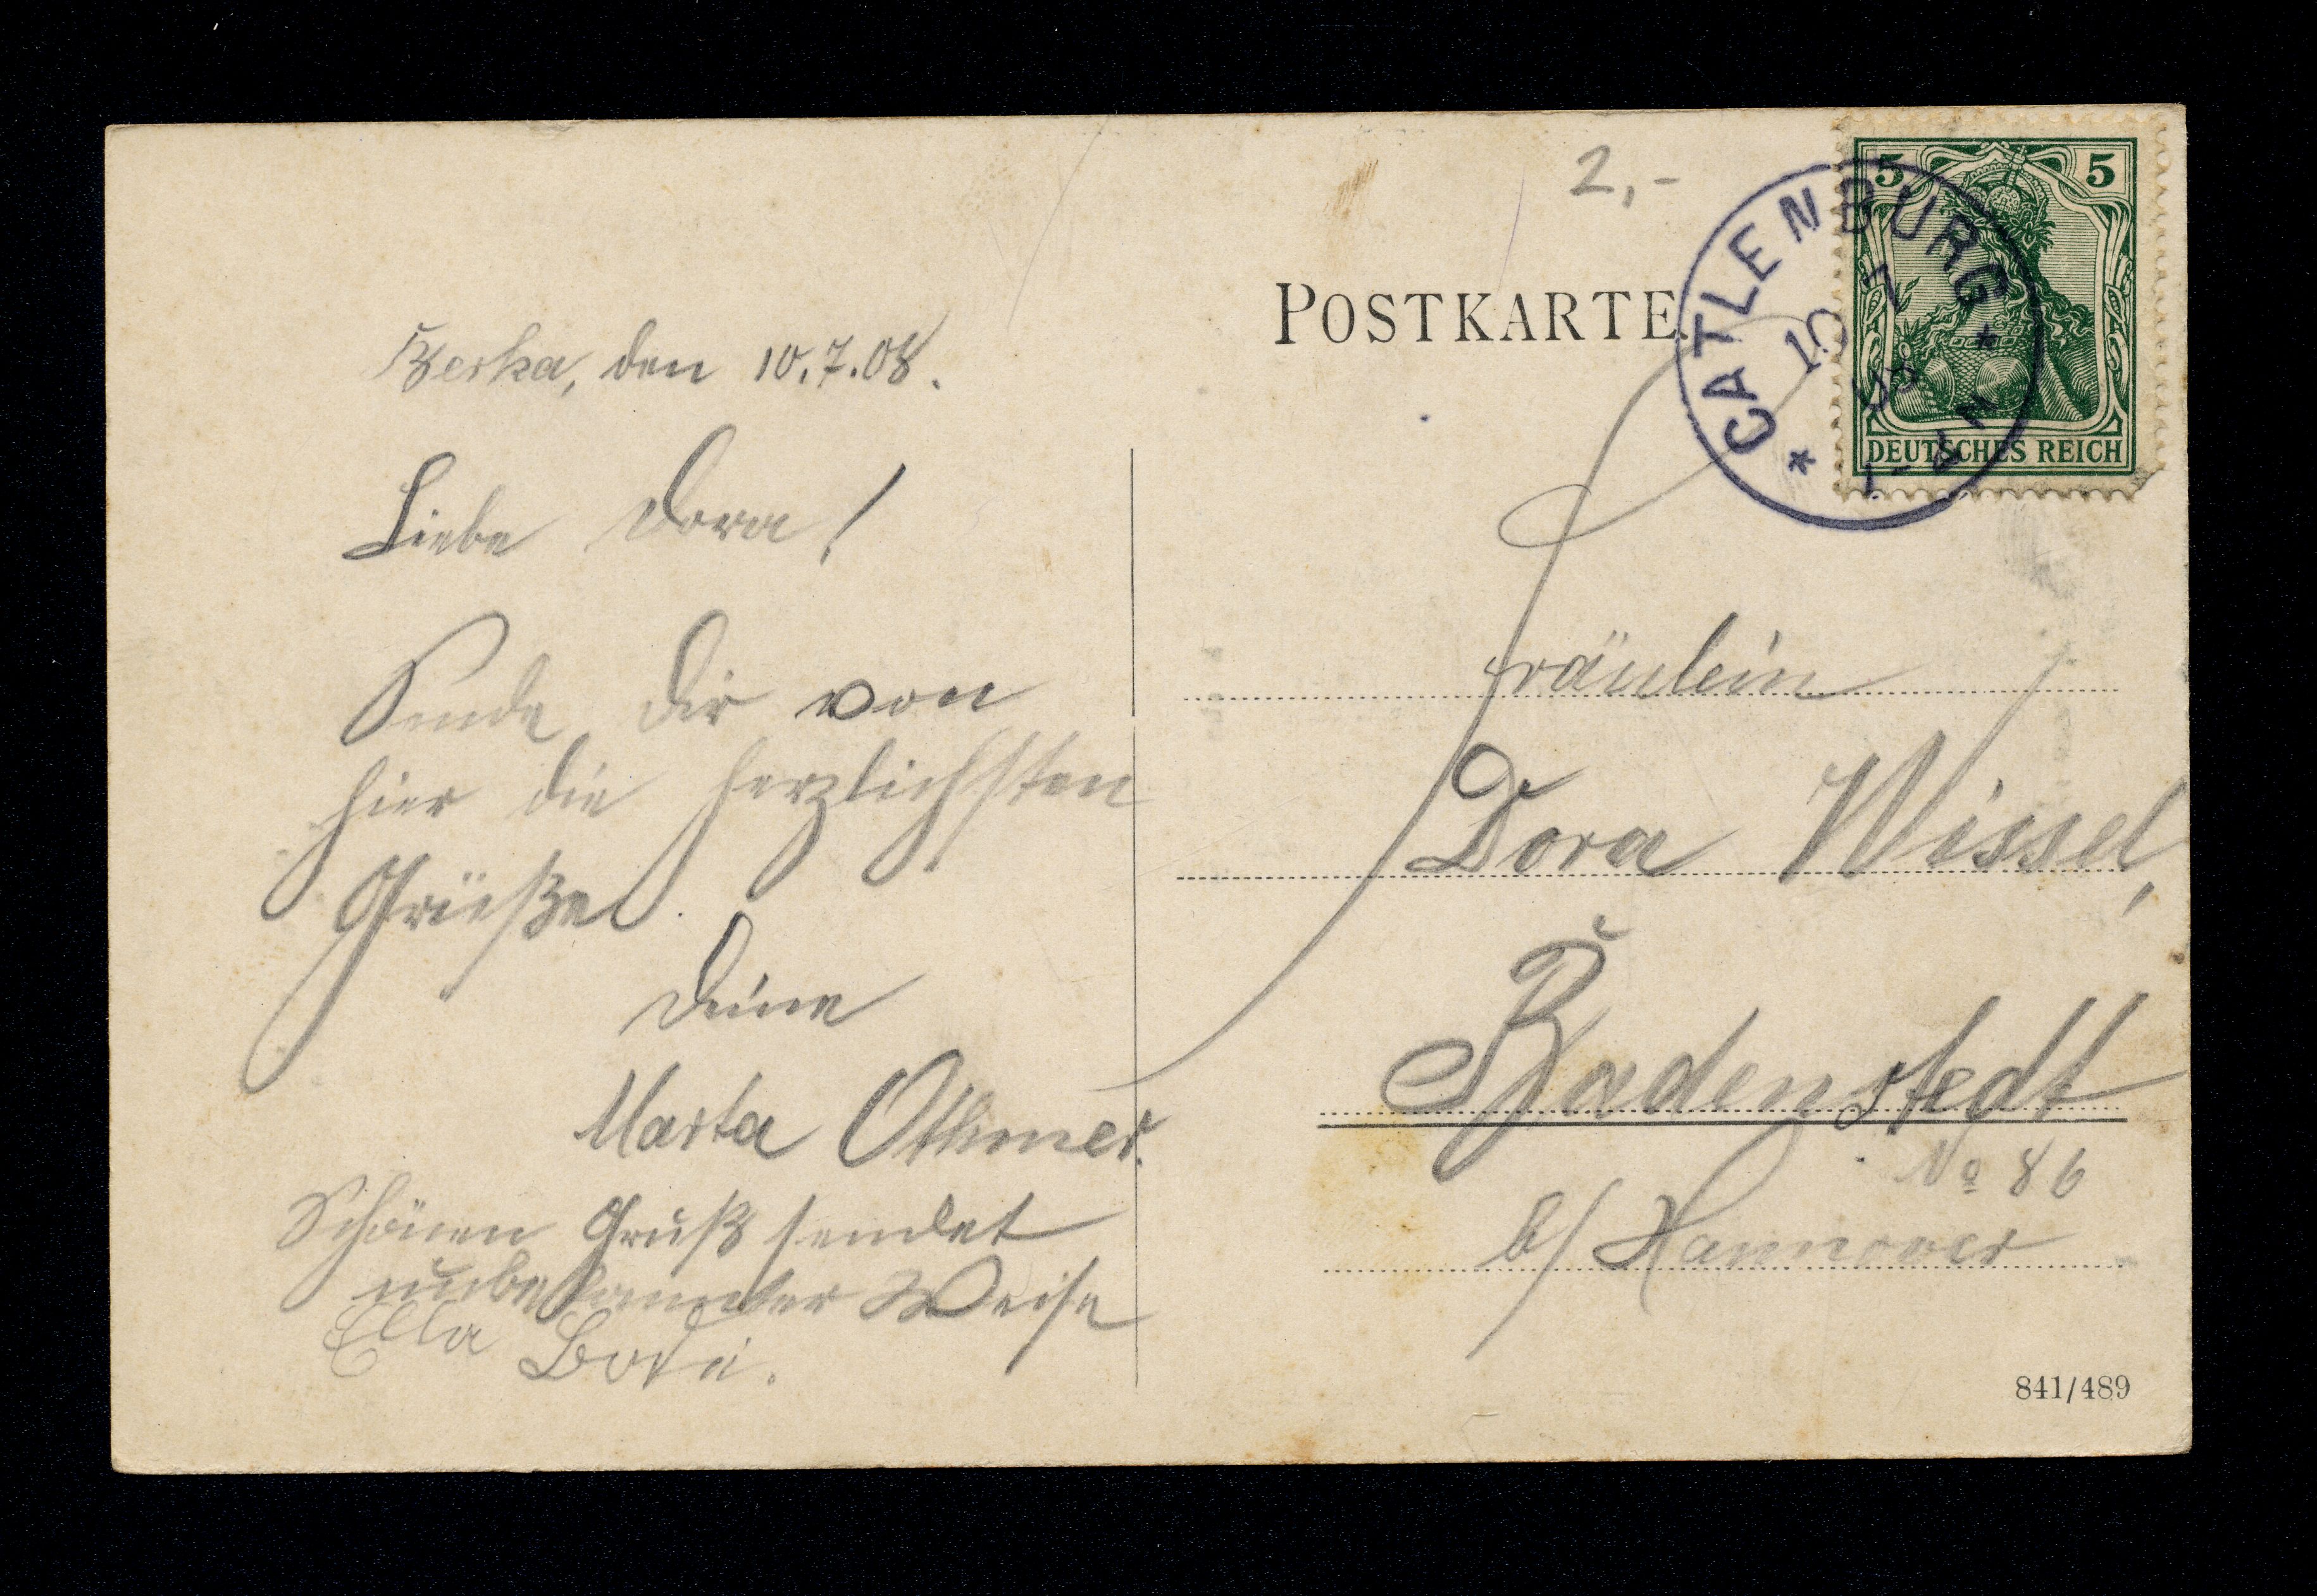 Berka, den 10.7.08.
Liebe Dora!
Sende Dir von
hier die herzlichsten
Grüße
Deine
Marta Othmer.
Schönen Gruß sendet
unbekannter Weise
Ella Bode.
2,-
POSTKARTE
5 5
DEUTSCHES REICH
* CATLENBURG *
10 7
08
Fräulein
Dora Wissel,
Badenstedt
No 86
b/ Hannover
841/489